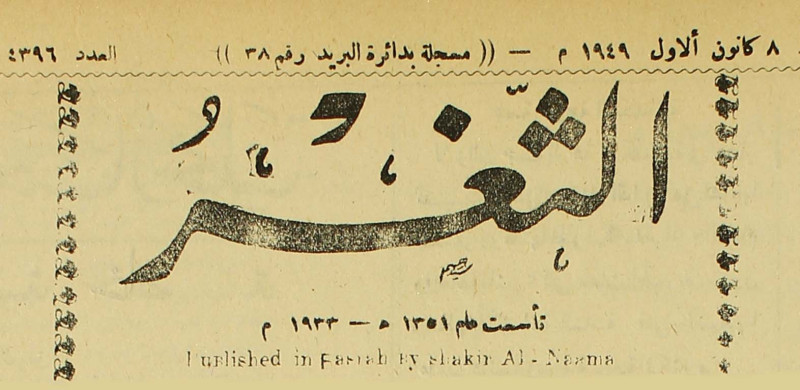 ٨ كانون ألاول ١٩٤٩ م — (( مسجلة بدائرة البريد رقم ٣٨ )) العدد ٤٣٩٦
الثغر
تأسست عام ١٣٥١ ه — ١٩٣٣ م
Published in Basrah by shakir Al - Naama